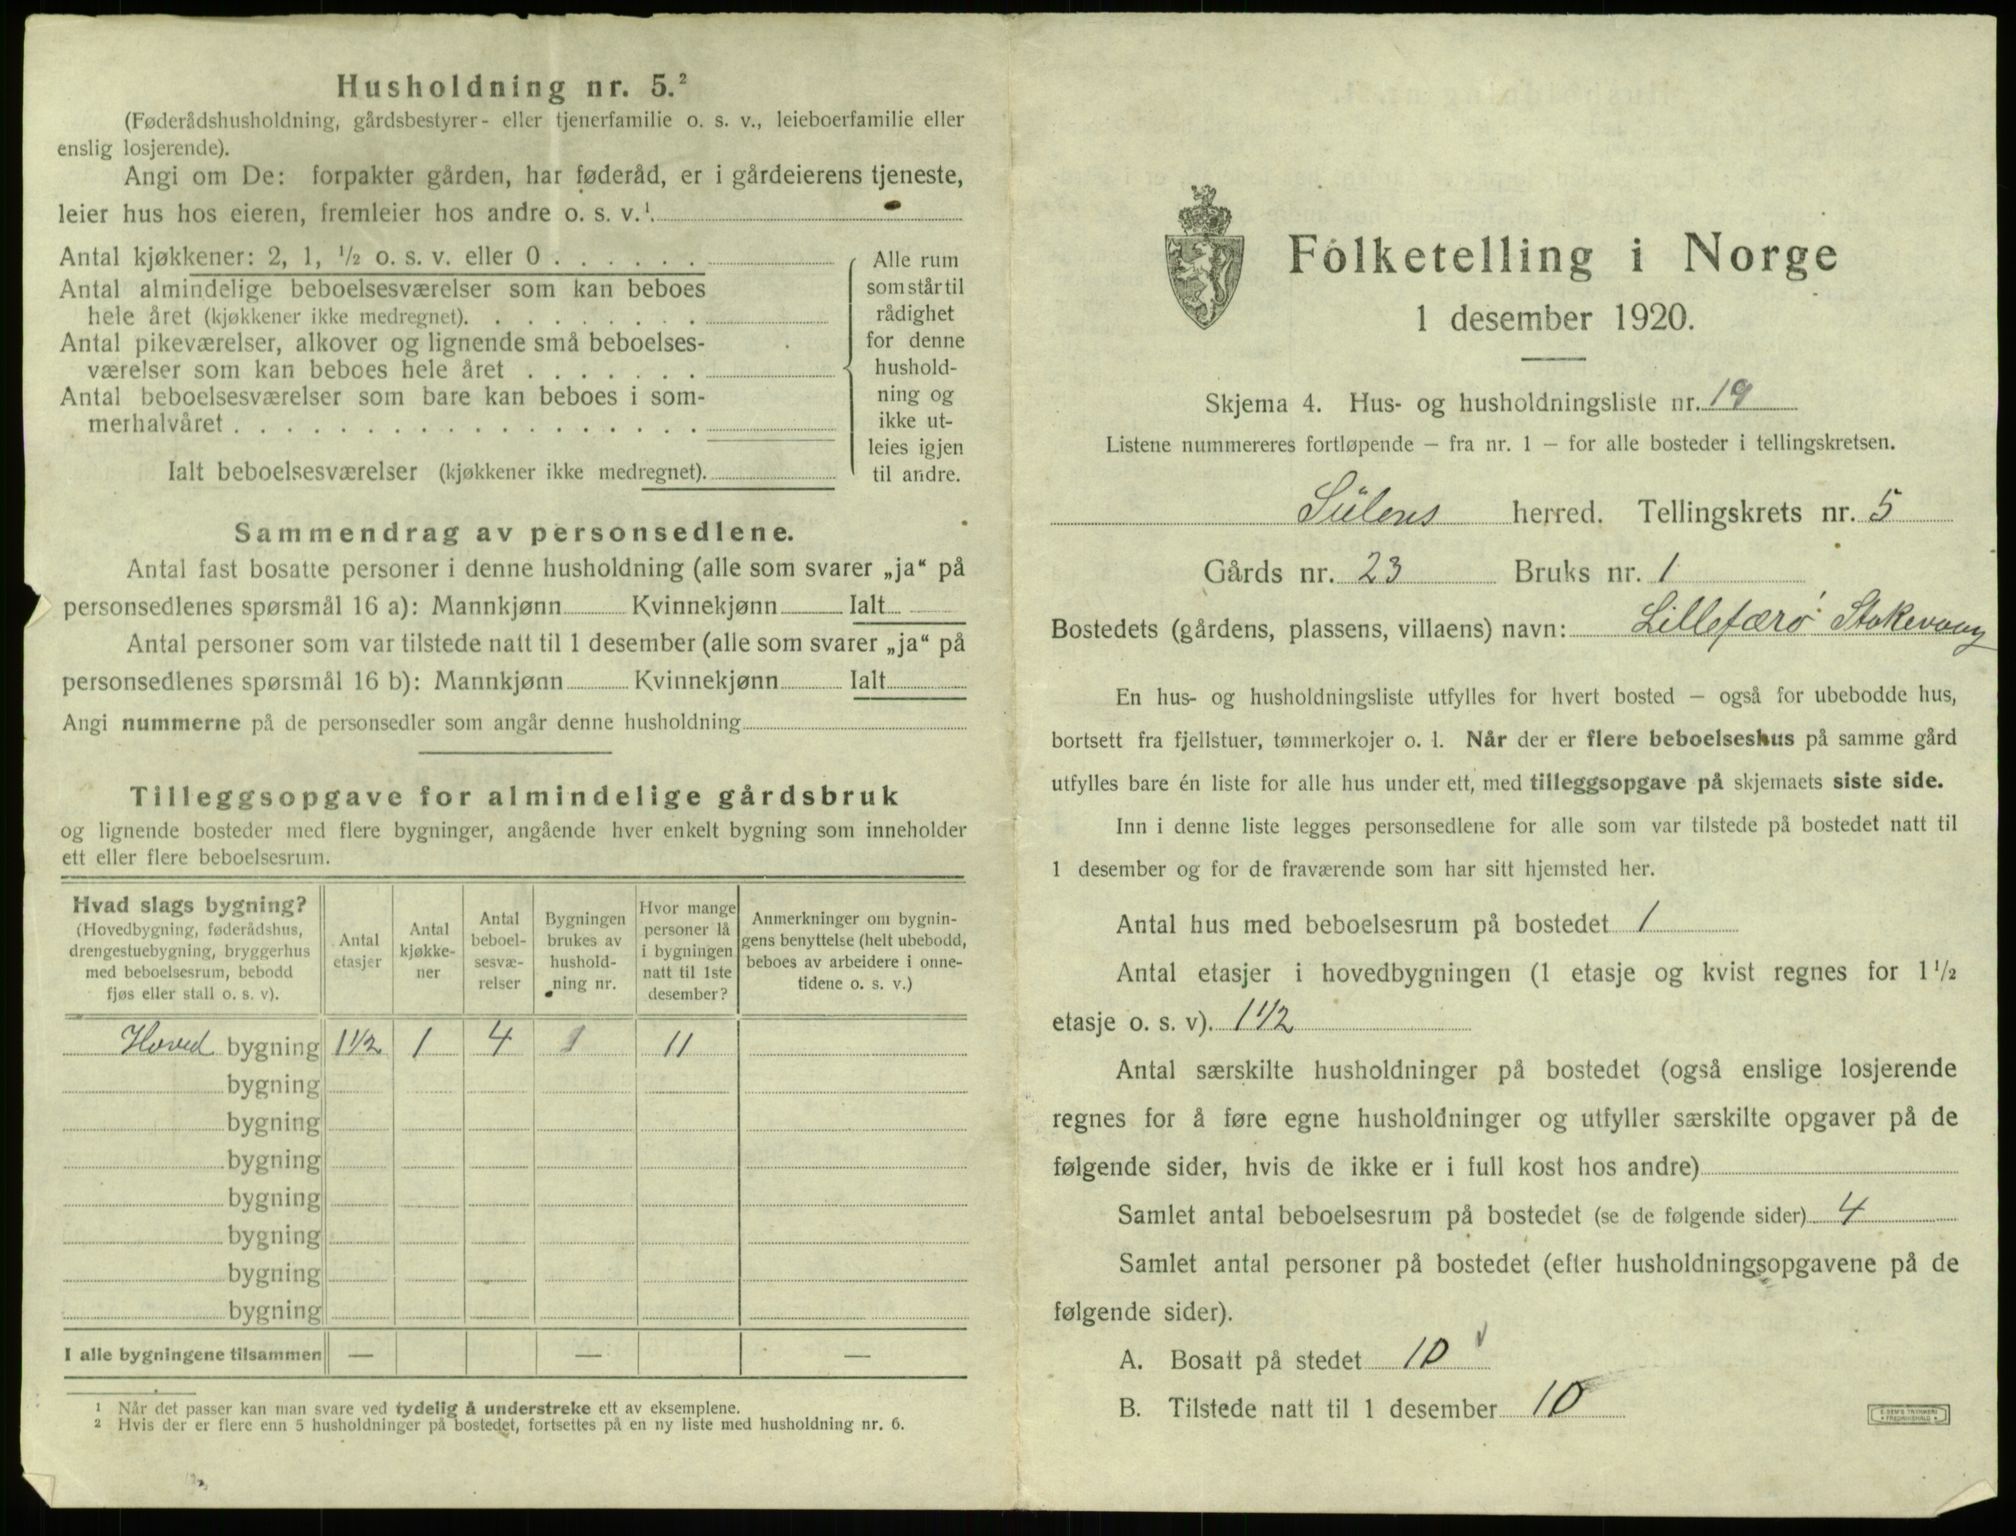 Husholdning nr. 5.²
(Føderådshusholdning, gårdsbestyrer- eller tjenerfamilie o. s. v., leieboerfamilie eller
enslig losjerende).
Angi om De: forpakter gården, har føderåd, er i gårdeierens tjeneste,
leier hus hos eieren, fremleier hos andre o. s. v.¹
Antal kjøkkener: 2, 1, ½ o. s. v. eller 0 . . . . . .
Antal almindelige beboelsesværelser som kan beboes
hele året (kjøkkener ikke medregnet). . . . . . . . .
Antal pikeværelser, alkover og lignende små beboelses-
værelser som kan beboes hele året . . . . . . .
Antal beboelsesværelser som bare kan beboes i som-
merhalvåret . . . . . . . . . . . . . . . . . .
Ialt beboelsesværelser (kjøkkener ikke medregnet).
Alle rum
som står til
rådighet
for denne
hushold-
ning og
ikke ut-
leies igjen
til andre.
Sammendrag av personsedlene.
Antal fast bosatte personer i denne husholdning (alle som svarer „ja“ på
personsedlenes spørsmål 16 a): Mannkjønn Kvinnekjønn Ialt
Antal personer som var tilstede natt til 1 desember (alle som svarer „ja“ på
personsedlenes spørsmål 16 b): Mannkjønn Kvinnekjønn Ialt
Angi nummerne på de personsedler som angår denne husholdning
Tilleggsopgave for almindelige gårdsbruk
og lignende bosteder med flere bygninger, angående hver enkelt bygning som inneholder
ett eller flere beboelsesrum.
Hvad slags bygning?
(Hovedbygning, føderådshus,
drengestuebygning, bryggerhus
med beboelsesrum, bebodd
fjøs eller stall o. s. v).
Antal
etasjer
Antal
kjøkke-
ner
Antal
beboel-
sesvæ-
relser
Bygningen
brukes av
hushold-
ning nr.
Hvor mange
personer lå
i bygningen
natt til 1ste
desember?
Anmerkninger om bygnin-
gens benyttelse (helt ubebodd,
beboes av arbeidere i onne-
tidene o. s. v.)
Hoved bygning 1½ 1 4 1 11
bygning
bygning
bygning
bygning
bygning
bygning
bygning
I alle bygningene tilsammen — — —
¹ Når det passer kan man svare ved tydelig å understreke ett av eksemplene.
² Hvis der er flere enn 5 husholdninger på bostedet, fortsettes på en ny liste med husholdning nr. 6.
Folketelling i Norge
1 desember 1920.
Skjema 4. Hus- og husholdningsliste nr. 19
Listene nummereres fortløpende — fra nr. 1 — for alle bosteder i tellingskretsen.
Sülens herred. Tellingskrets nr. 5
Gårds nr. 23 Bruks nr. 1
Bostedets (gårdens, plassens, villaens) navn: Lillefærø Stokevaag
En hus- og husholdningsliste utfylles for hvert bosted — også for ubebodde hus,
bortsett fra fjellstuer, tømmerkojer o. l. Når der er flere beboelseshus på samme gård
utfylles bare én liste for alle hus under ett, med tilleggsopgave på skjemaets siste side.
Inn i denne liste legges personsedlene for alle som var tilstede på bostedet natt til
1 desember og for de fraværende som har sitt hjemsted her.
Antal hus med beboelsesrum på bostedet 1
Antal etasjer i hovedbygningen (1 etasje og kvist regnes for 1½
etasje o. s. v). 1½
Antal særskilte husholdninger på bostedet (også enslige losjerende
regnes for å føre egne husholdninger og utfyller særskilte opgaver på de
følgende sider, hvis de ikke er i full kost hos andre)
Samlet antal beboelsesrum på bostedet (se de følgende sider) 4
Samlet antal personer på bostedet (efter husholdningsopgavene på de
følgende sider).
A. Bosatt på stedet 10
B. Tilstede natt til 1 desember 10